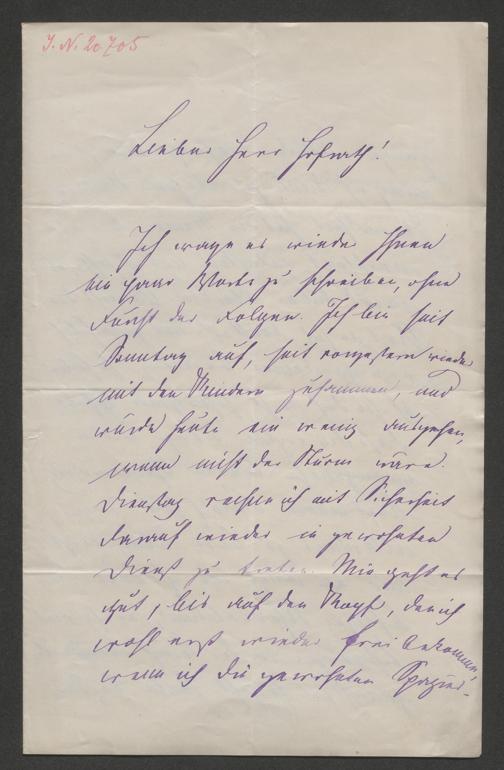 J. N. 20705
Lieber Herr Hofrath!
Ich wage es wieder Ihnen
ein paar Worte zu schreiben, ohne
Furcht der Folgen. Ich bin seit
Sonntag auf, seit vorgestern wieder
mit den Kindern zusammen, und
würde heute ein wenig ausgehen,
wenn nicht der Sturm wäre.
Dienstag rechne ich mit Sicherheit
darauf wieder in gewohnten
Dienst zu treten. Mir geht es
gut, bis auf den Kopf, den ich
wohl erst wieder frei bekomme,
wenn ich die gewohnten Spazier-